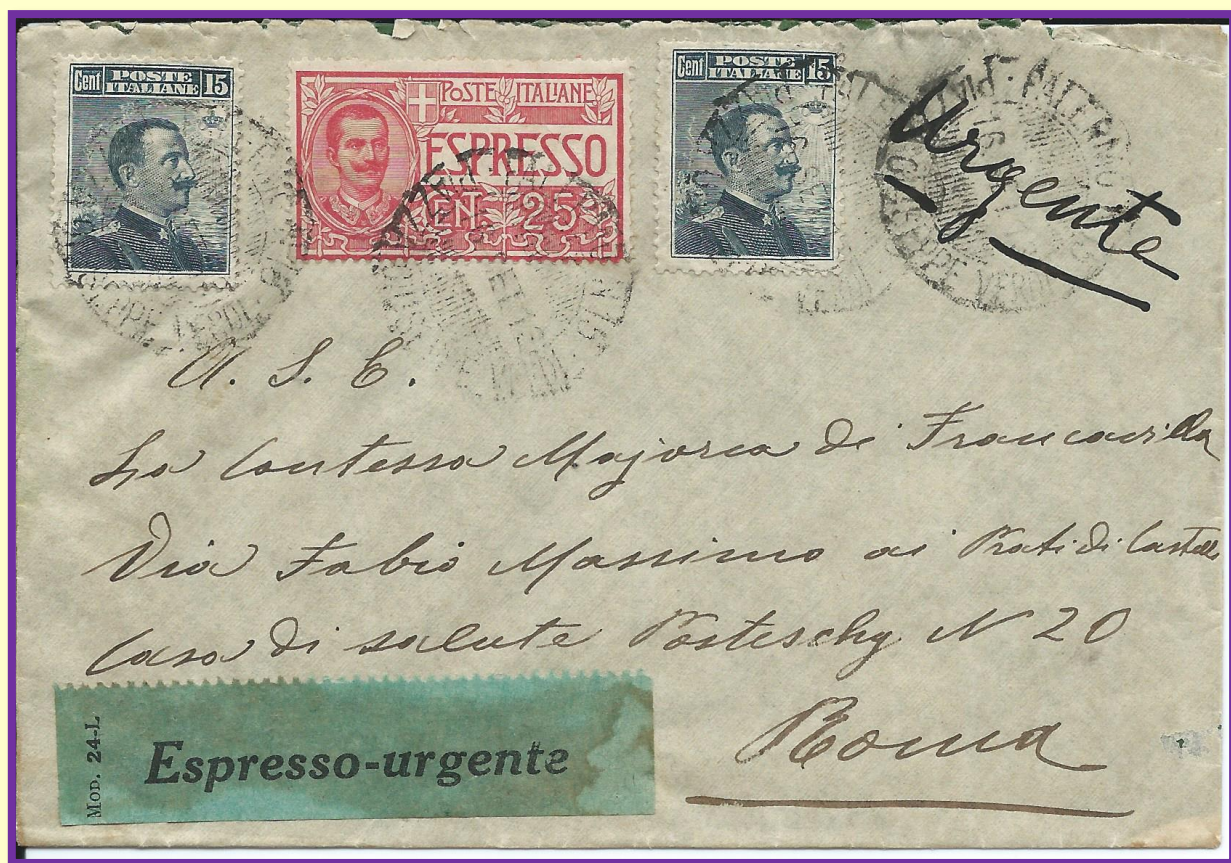 Cent POSTE ITALIANE 15
POSTE ITALIANE
ESPRESSO
CENT. 25
Cent POSTE ITALIANE 15
Urgente
PALERMO
GIUSEPPE VERDI
A. S. E.
La Contessa Majorca di Francavilla
Via Fabio Massimo ai Prati di Castello
Casa di salute N 20
Roma
MOD. 24-L
Espresso-urgente